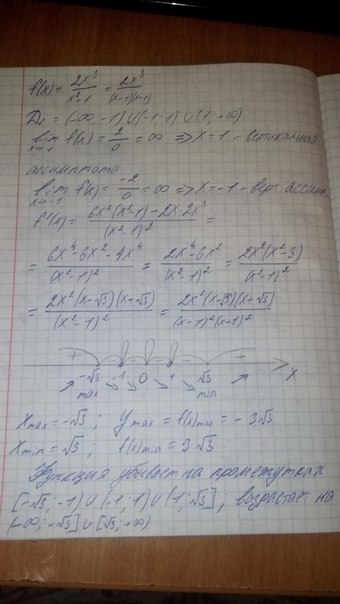 f(x) = 2x³/(x²-1) = 2x³/((x-1)(x-1))
D_f = (-∞; -1) ∪ (-1; 1) ∪ (1; +∞)
lim_{x→1} f(x) = 2/0 = ∞ => x = 1 - вертикальная
ассимптота
lim_{x→-1} f(x) = -2/0 = ∞ => x = -1 - верт. ассимп
f'(x) = (6x²(x²-1) - 2x·2x³)/(x²-1)² =
= (6x⁴-6x²-4x⁴)/(x²-1)² = (2x⁴-6x²)/(x²-1)² = 2x²(x²-3)/(x²-1)²
= 2x²(x-√3)(x+√3)/(x²-1)² = 2x²(x-√3)(x+√3)/((x-1)²(x+1)²)
+ - - - - +
↗ -√3 ↘ -1 ↘ 0 ↘ 1 ↘ √3 ↗ x
max min
x max = -√3; y max = f(x) max = -3√3
x min = √3; f(x) min = 3√3
Функция убывает на промежутках
[-√3; -1) ∪ (-1; 1) ∪ (1; √3], возрастает на
(-∞; -√3] ∪ [√3; +∞)